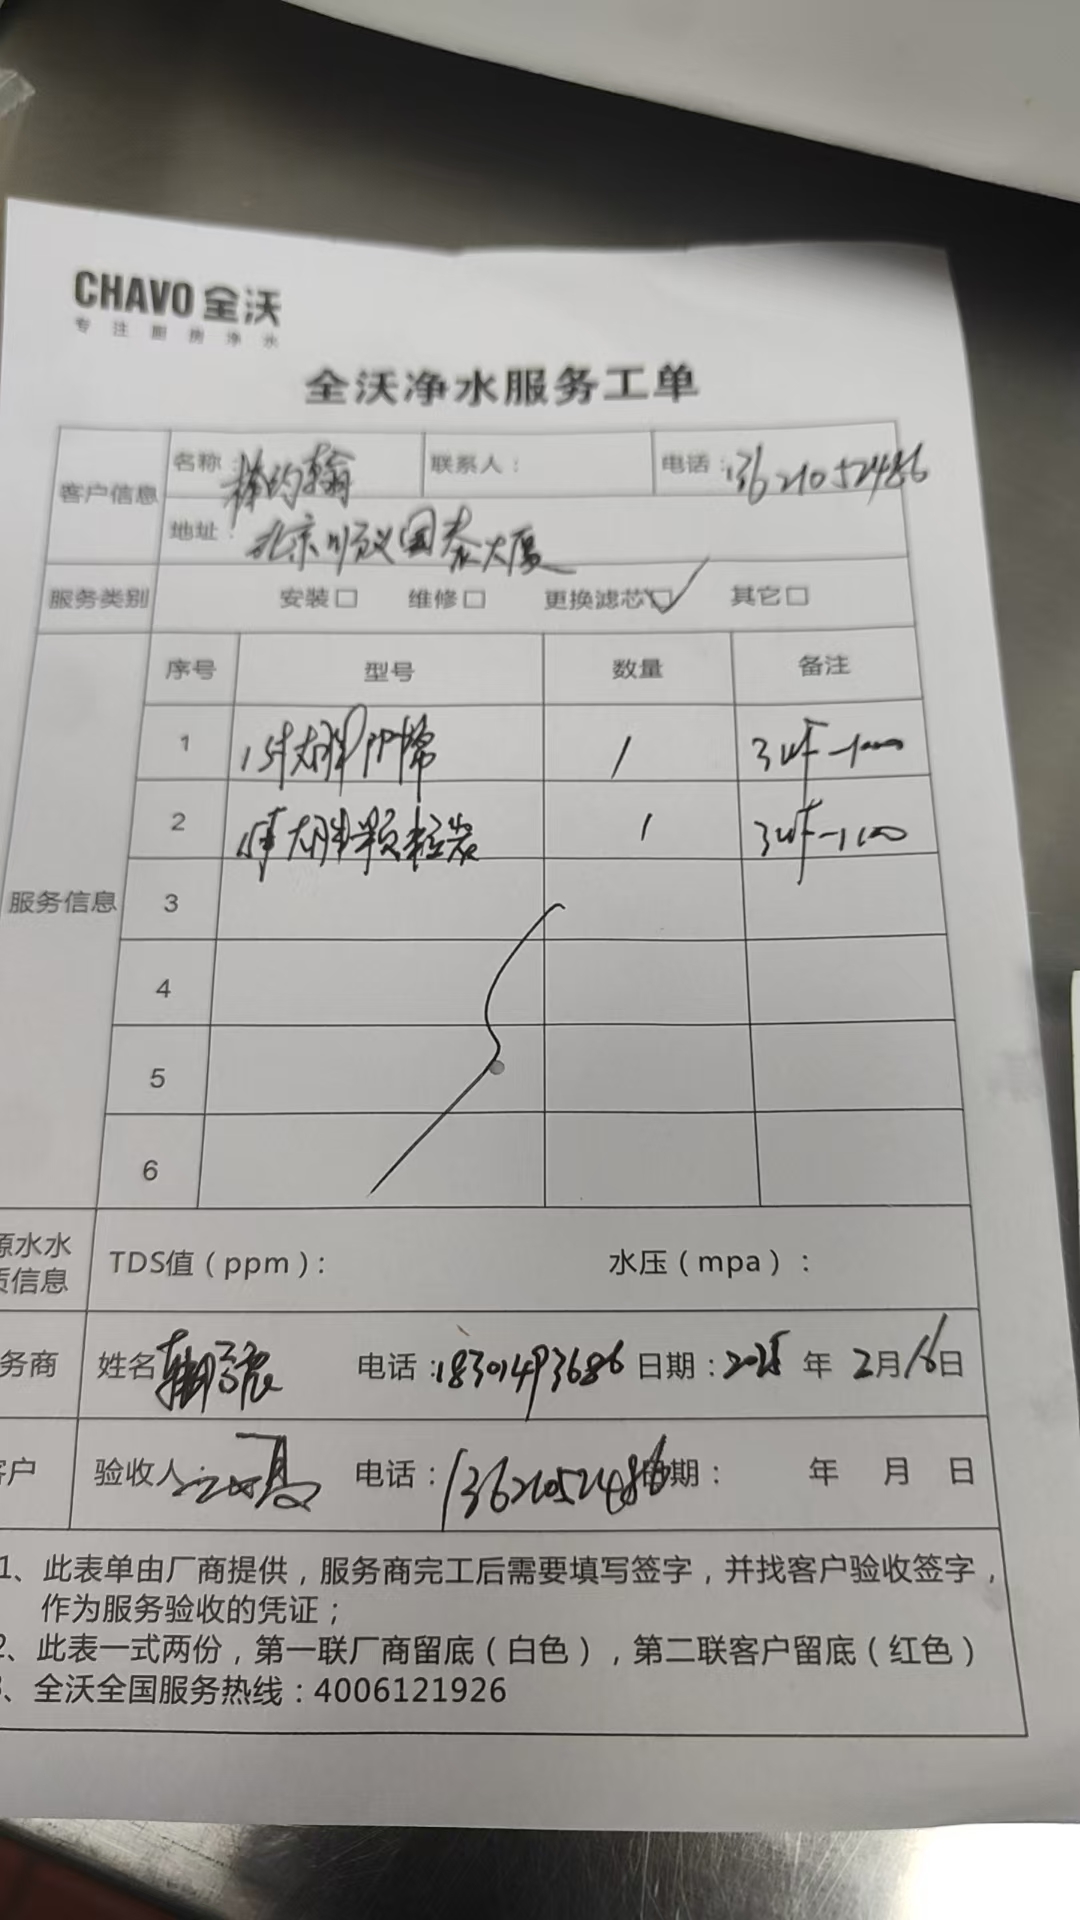 CHAVO 全沃
专注厨房净水
全沃净水服务工单
客户信息
名称：棒约翰 联系人： 电话：13621052486
地址：北京顺义国泰大厦
服务类别 安装□ 维修□ 更换滤芯□✓ 其它□
服务信息
序号 型号 数量 备注
1 大胖PP棉 1 3WF-1000
2 大胖颗粒炭 1 3WF-1100
3
4
5
6
源水水
质信息
TDS值（ppm）： 水压（mpa）：
务商 姓名 电话：18301493686 日期：2025 年 2月16日
客户 验收人： 电话：13621052486 日期： 年 月 日
1、此表单由厂商提供，服务商完工后需要填写签字，并找客户验收签字，
作为服务验收的凭证；
2、此表一式两份，第一联厂商留底（白色），第二联客户留底（红色）
3、全沃全国服务热线：4006121926